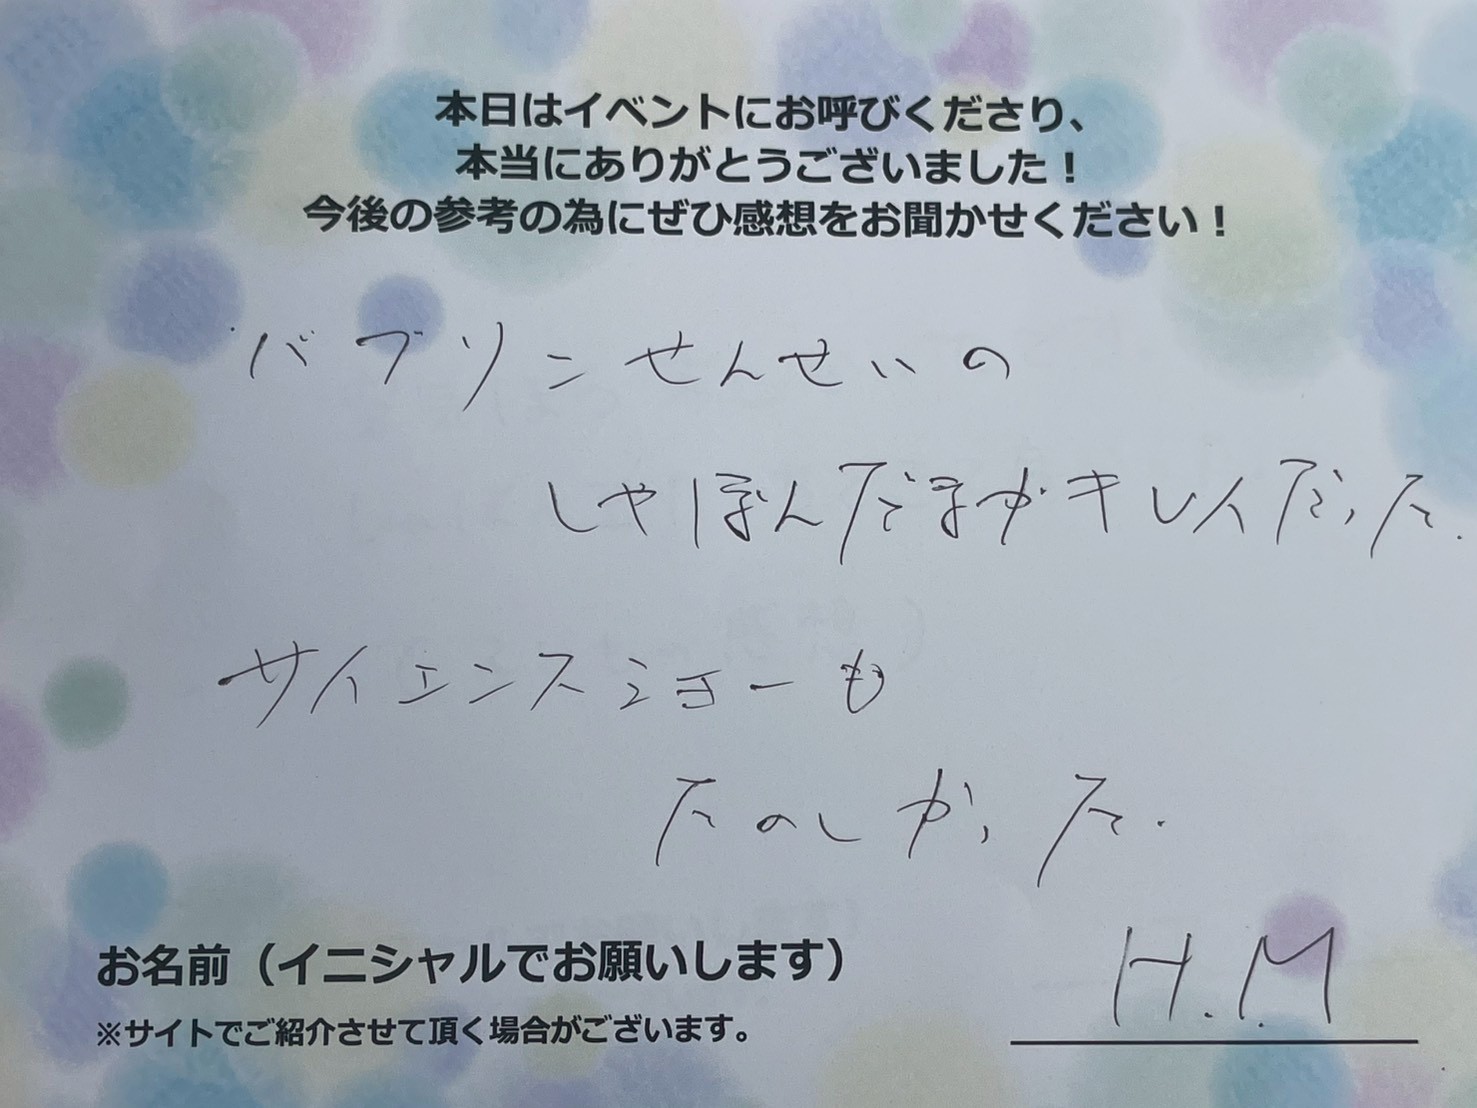 本日はイベントにお呼びくださり、
本当にありがとうございました！
今後の参考の為にぜひ感想をお聞かせください！
バブリンせんせいの
しゃぼんだまがキレイだった.
サイエンスショーも
たのしかった.
お名前（イニシャルでお願いします）
H.M
※サイトでご紹介させて頂く場合がございます。